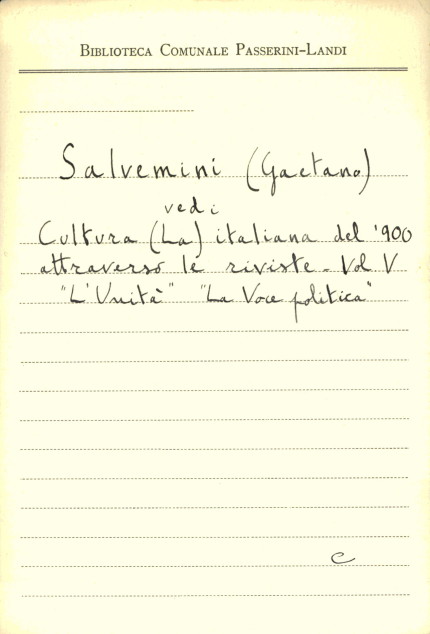 BIBLIOTECA COMUNALE PASSERINI-LANDI
Salvemini (Gaetano)
vedi
Cultura (La) italiana del '900
attraverso le riviste - Vol V
"L'Unità" "La Voce politica"
C